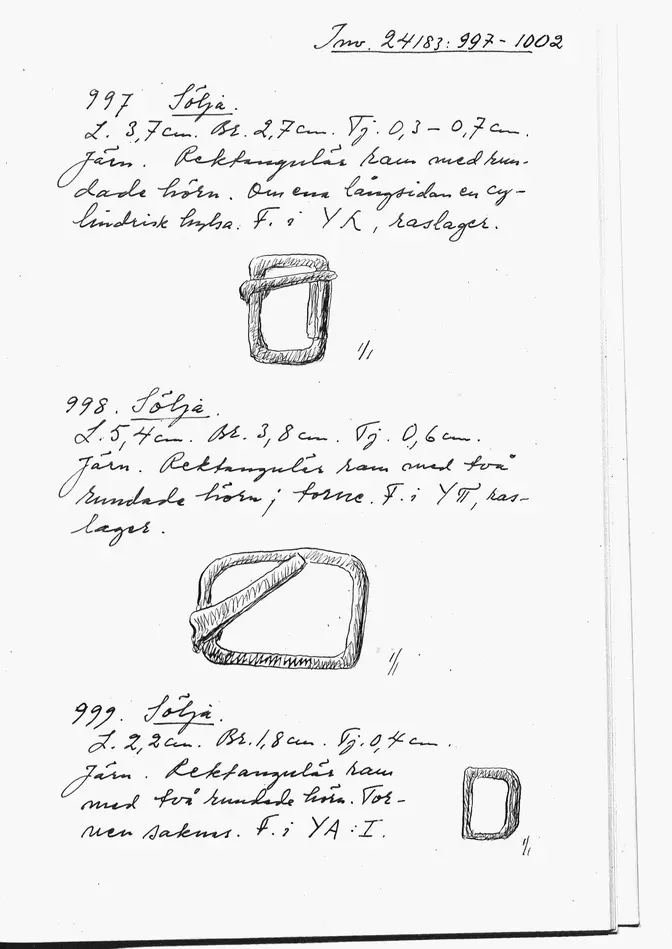 Inv. 24183:997-1002
997 Sölja.
L. 3,7cm. Br. 2,7cm. Tj. 0,3-0,7cm.
Järn. Rektangulär ram med run-
dade hörn. Om ena långsidan en cy-
lindrisk hylsa. F. i Y, raslager.
1/1
998. Sölja.
L. 5,4cm. Br. 3,8cm. Tj. 0,6cm.
Järn. Rektangulär ram med två
rundade hörn; torne. F. i YΠ, ras-
lager.
1/1
999. Sölja.
L. 2,2cm. Br. 1,8cm. Tj. 0,4cm.
Järn. Rektangulär ram
med två rundade hörn. Tor-
nen saknas. F. i YA:I.
1/1